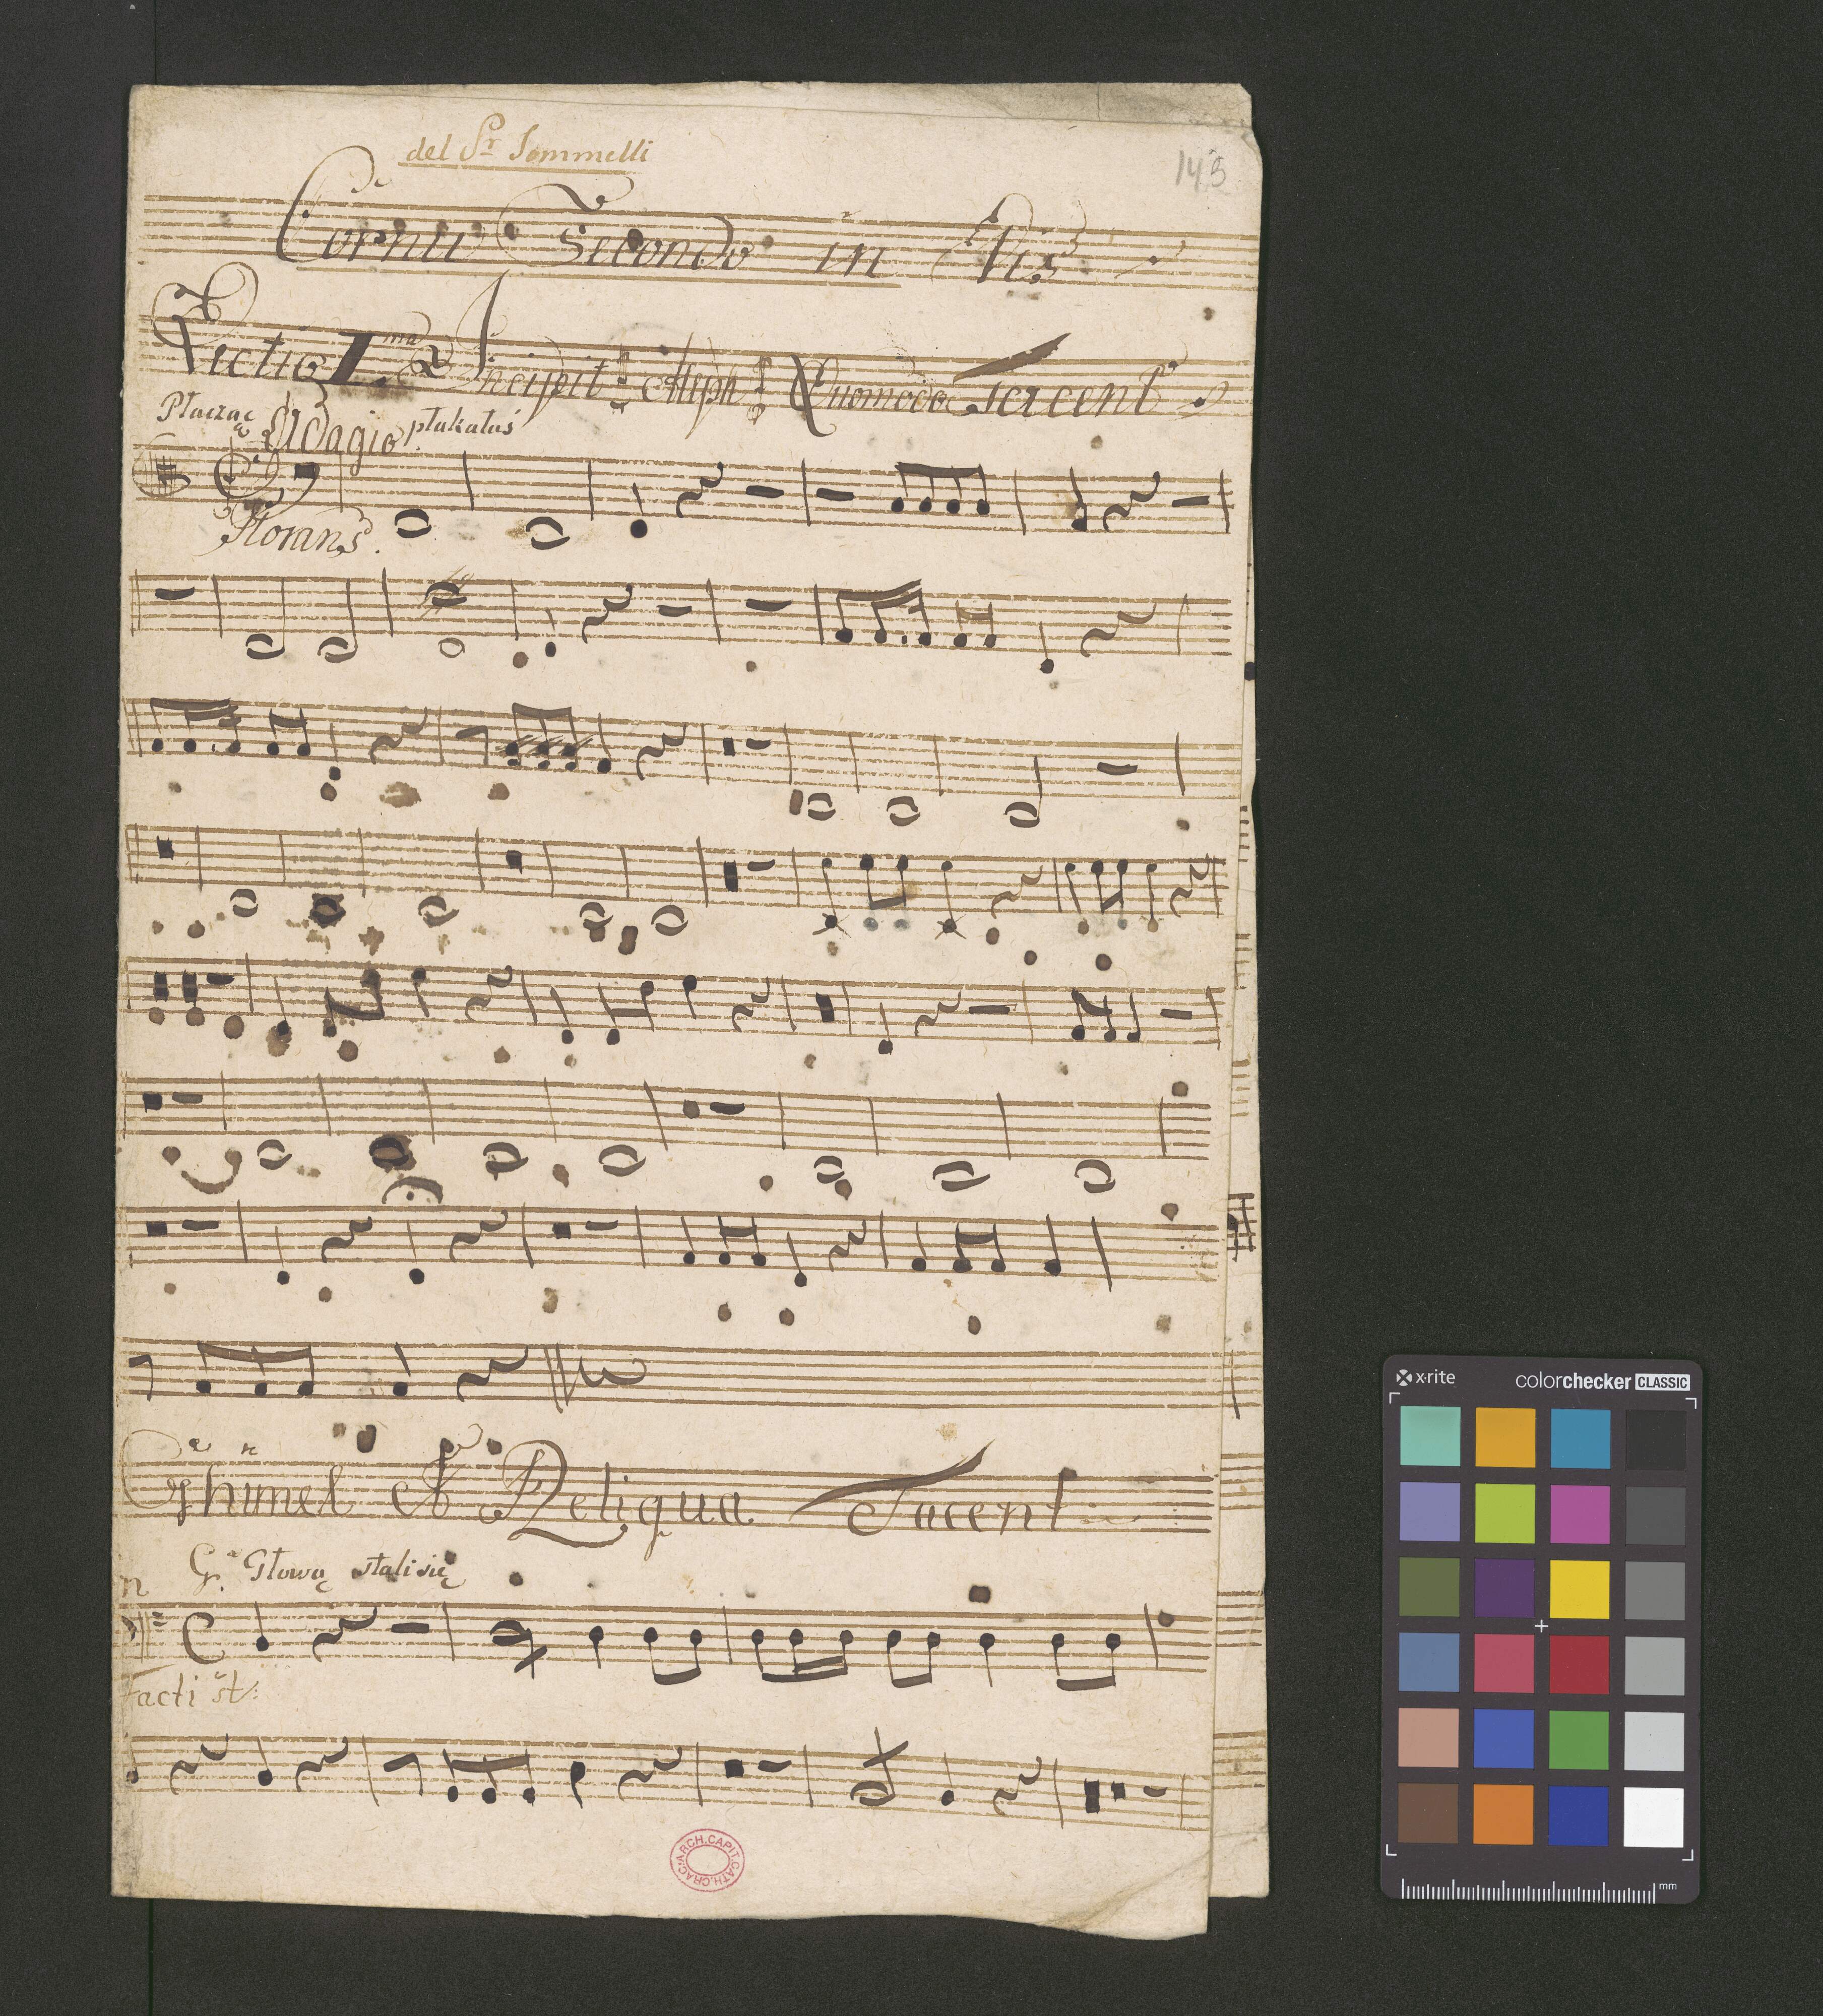 del Sr Jommelli
143
Cornu Secondo in Dis
Lectio I.ma Incipit Aleph Quomodo Tacent
Płacząc płakałaś
Adagio
Plorans.
Ghimel et Reliqua Tacent
G. Głową stali się
Facti st:
ARCH.CAPIT.CATH.CRAC.
x·rite
colorchecker CLASSIC
mm